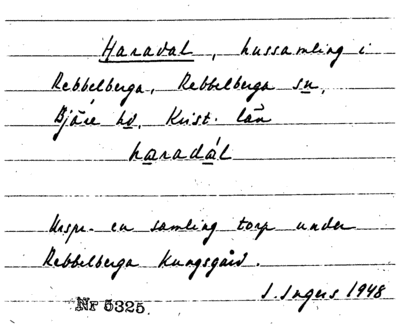 Haradal, hussamling i
Rebbelberga, Rebbelberga sn,
Bjäre hd, Krist. län
haradál
Urspr. en samling torp under
Rebbelberga Kungsgård.
I. Ingers 1948
Nr 5325.